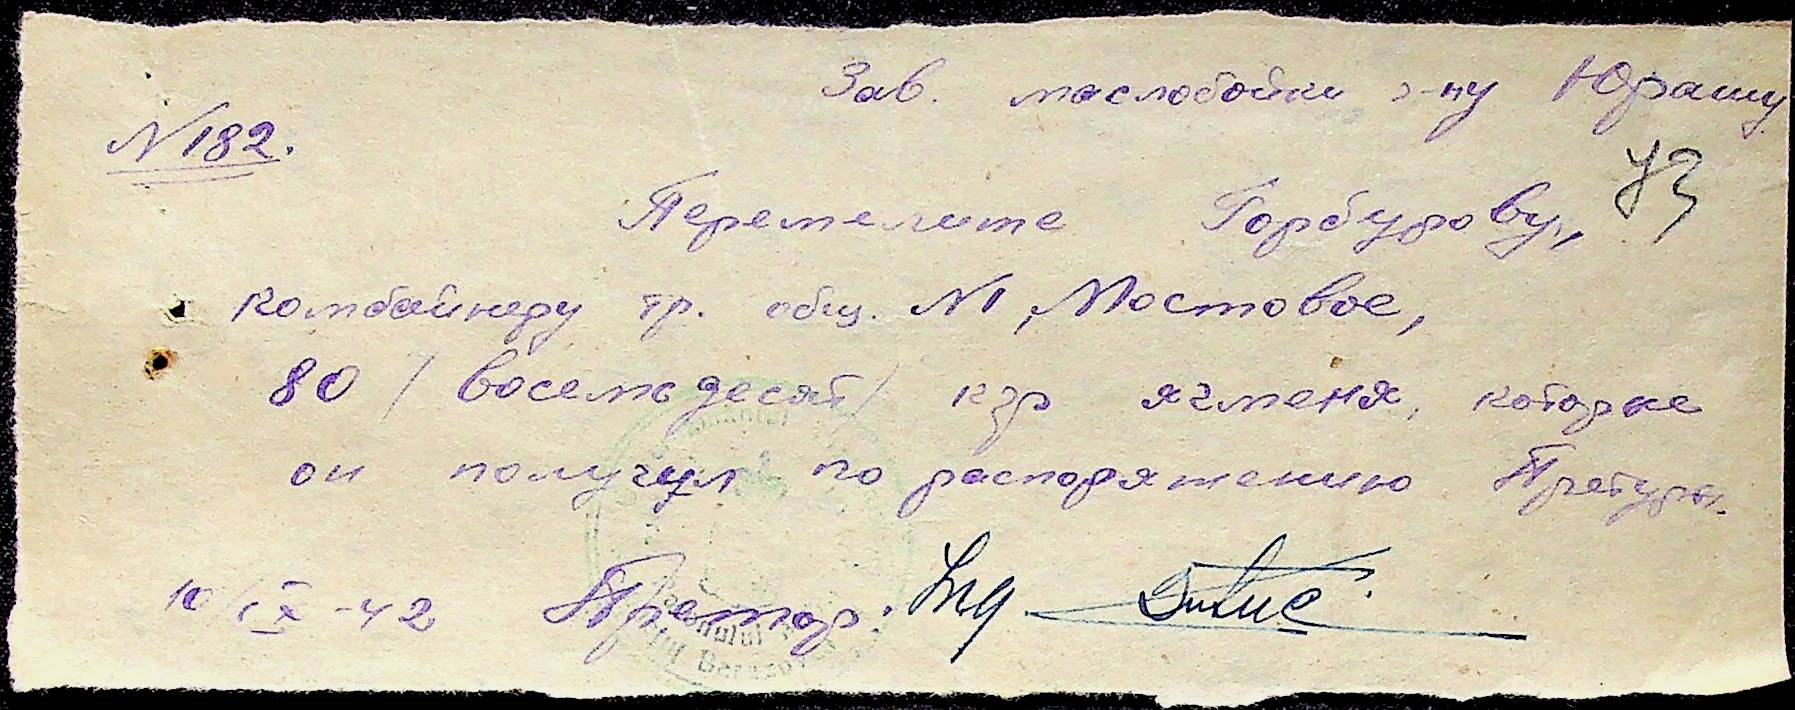 Зав. маслобойки г-ну Юрашу
N 182.
73
Перемелите Горбурову,
комбайнеру тр. общ. N1, Мостовое,
80 /восемьдесят/ кгр ячменя, которые
он получил по распоряжению Претуры.
10/IX-42 Претор: Ing.